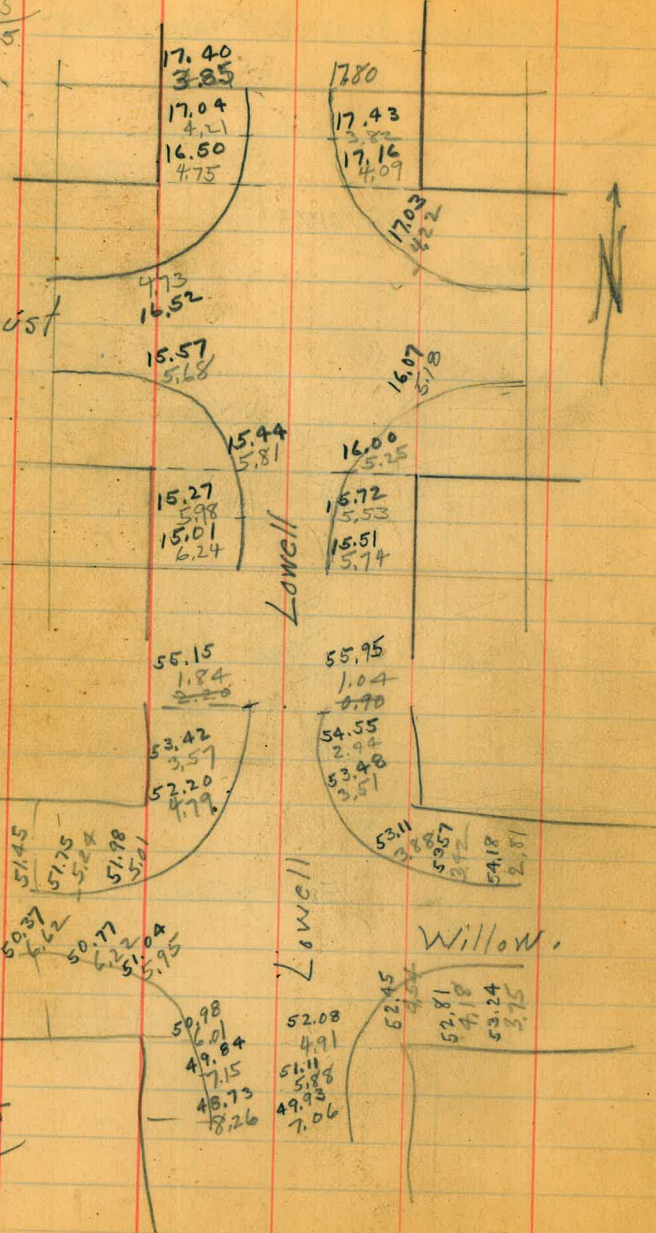 17.40
3.85
17.04
4.21
16.50
4.75
4.73
16.52
17.80
17.43
3.82
17.16
4.09
17.03
4.22
N
15.57
5.68
15.44
5.81
15.27
5.98
15.01
6.24
16.07
5.18
16.00
5.25
15.72
5.53
15.51
5.74
Lowell
55.15
1.84
2.20
53.42
3.57
52.20
4.79
51.98
5.01
51.75
5.24
51.45
55.95
1.04
0.90
54.55
2.44
53.48
3.51
53.11
3.88
53.57
3.42
54.18
2.81
Lowell
Willow.
50.37
6.62
50.77
6.22
51.04
5.95
50.98
6.01
49.84
7.15
48.73
8.26
52.08
4.91
51.11
5.88
49.93
7.06
52.45
4.54
52.81
4.18
53.24
3.75